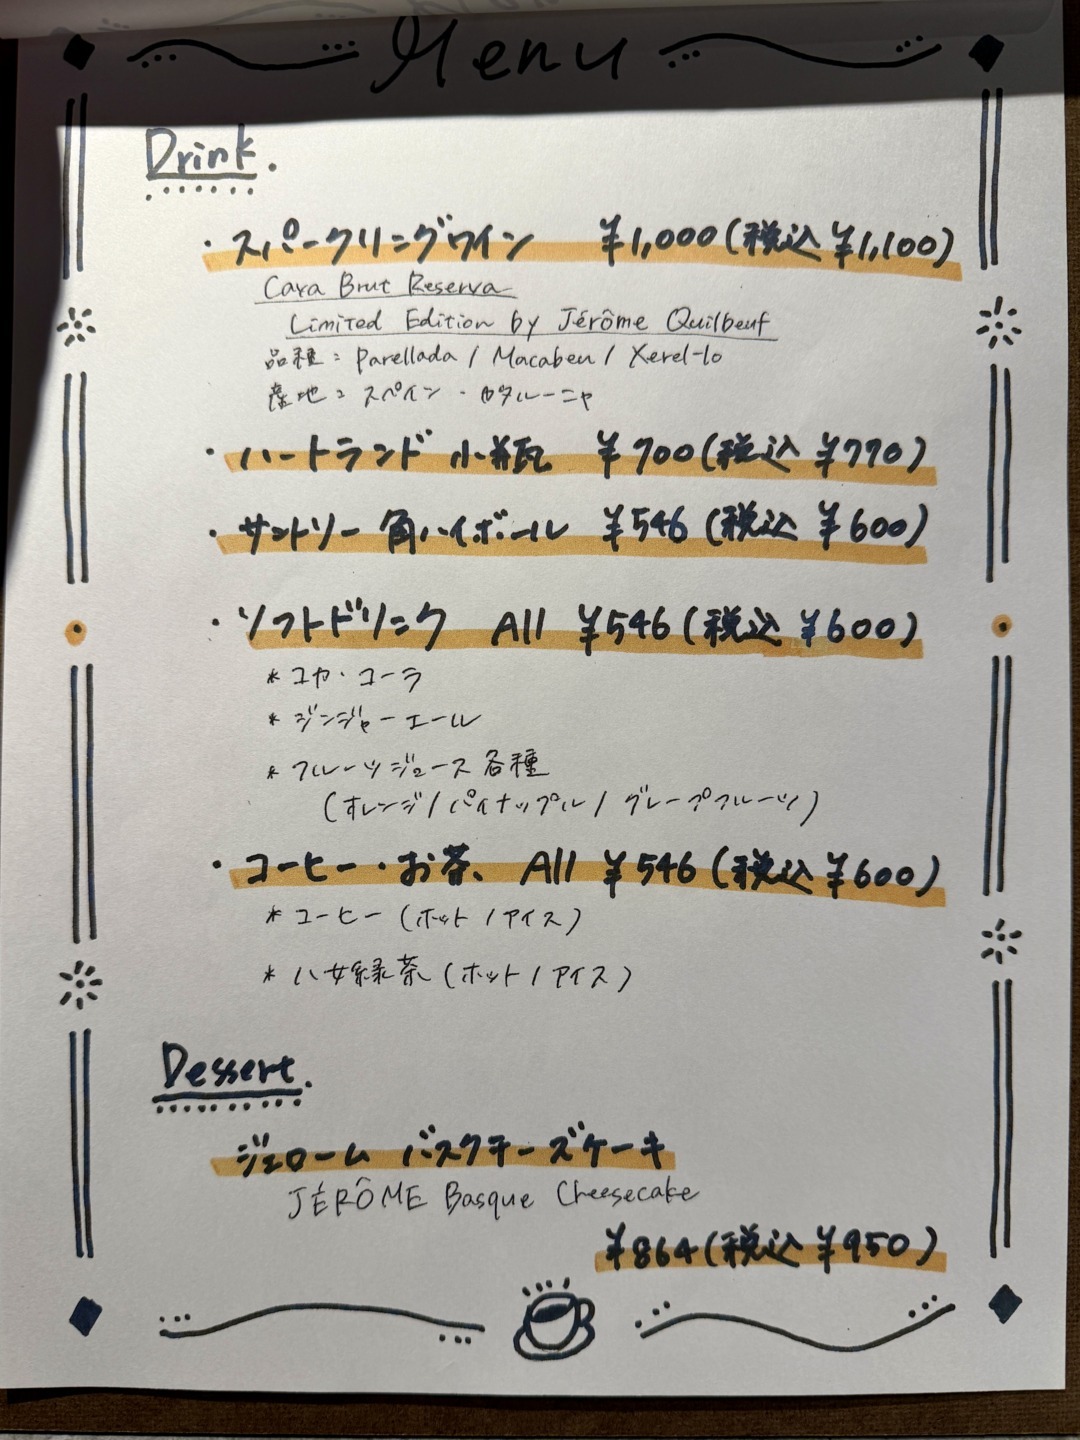 Menu
Drink.
・スパークリングワイン ¥1,000(税込¥1,100)
Cava Brut Reserva
Limited Edition by Jérôme Quilbeuf
品種: Parellada / Macabeu / Xerel-lo
産地: スペイン・カタルーニャ
・ハートランド 小瓶 ¥700(税込¥770)
・サントリー 角ハイボール ¥546(税込¥600)
・ソフトドリンク All ¥546(税込¥600)
* コカ・コーラ
* ジンジャーエール
* フルーツジュース各種
(オレンジ/パイナップル/グレープフルーツ)
・コーヒー・お茶、All ¥546(税込¥600)
* コーヒー(ホット/アイス)
* 八女緑茶(ホット/アイス)
Dessert.
ジェローム バスクチーズケーキ
JÉRÔME Basque Cheesecake
¥864(税込¥950)